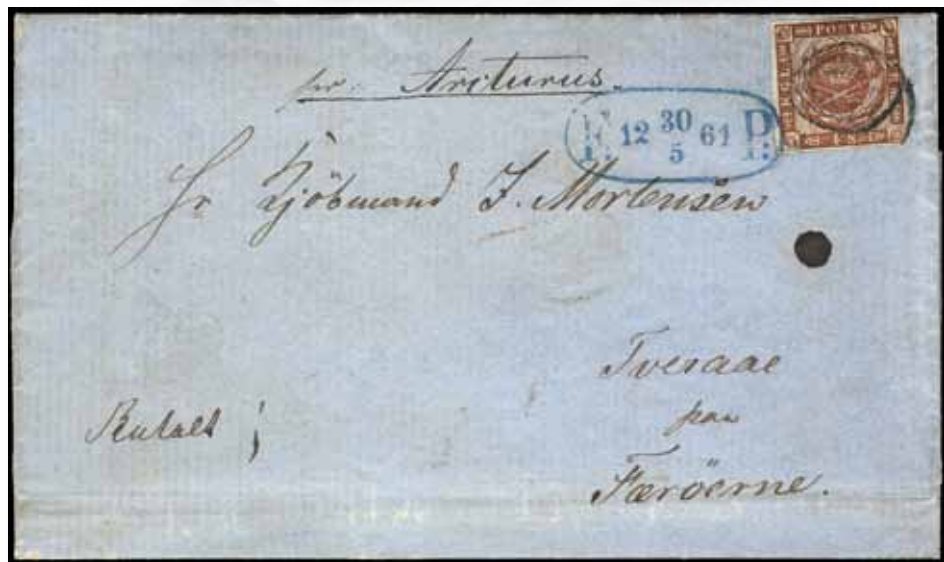 POST
pr. Arcturus.
F: 12 30/5 61 P:
Hr Kjöbmand J. Mortensen
Tveraae
paa
Færöerne.
Betalt